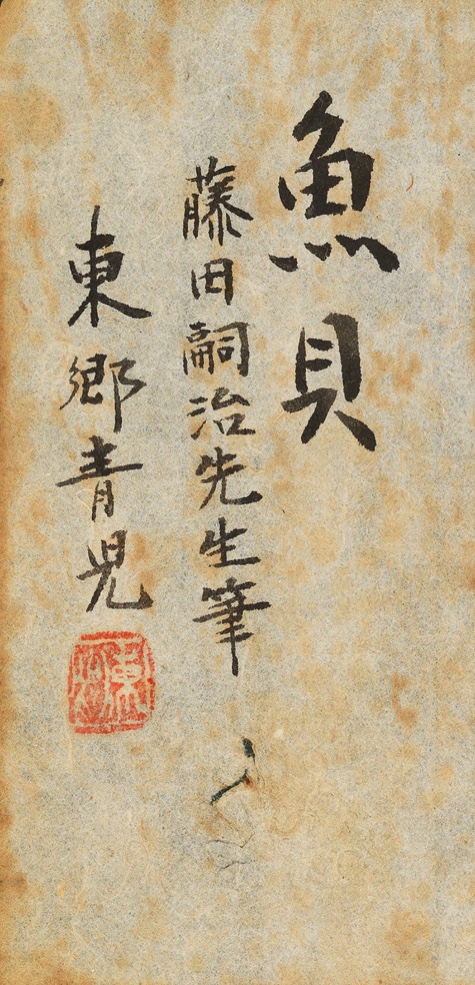 魚貝
藤田嗣治先生筆
東郷青児